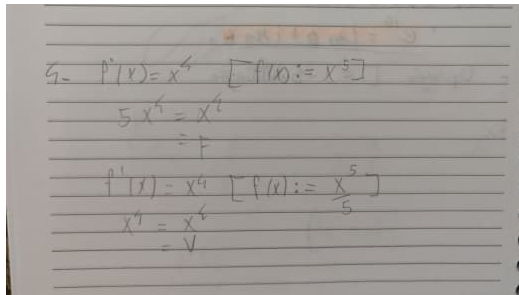 4- f'(x) = x⁴ [f(x) := x⁵]
5x⁴ = x⁴
= F
f'(x) = x⁴ [f(x) := x⁵/5]
x⁴ = x⁴
= V